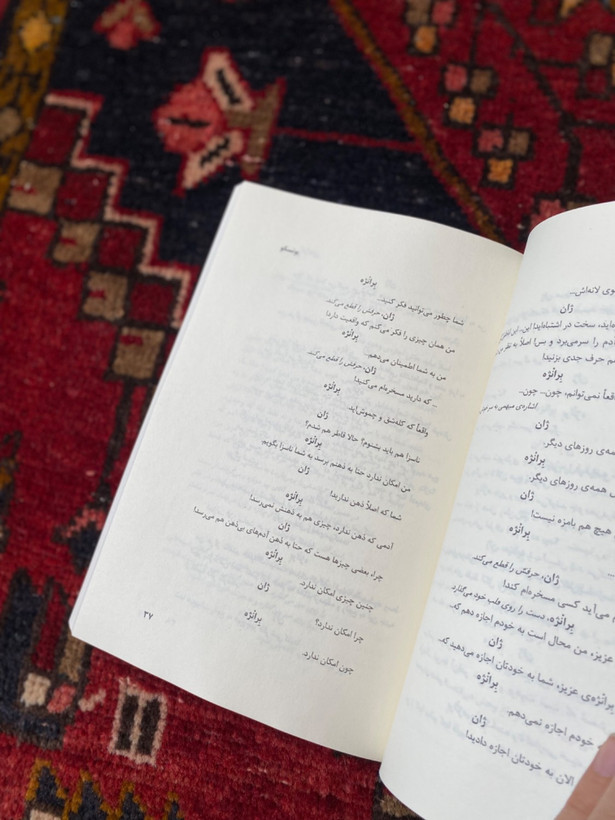 لانه‌اش...
ژان
سخت در اشتباه‌اید! این...
آدم را سرمی‌برد و بس! اصلاً به نظر
حرف جدی بزنید!
بِرانْژه
نمی‌توانم، چون... چون...
ژان
روزهای دیگر.
بِرانْژه
همه‌ی روزهای دیگر.
ژان
هیچ هم بامزه نیست!
بِرانْژه
ژان، حرفش را قطع می‌کند
می‌آید کسی مسخره‌ام کند!
بِرانْژه، دست را روی قلب خود می‌گذارد
عزیز، من محال است به خودم اجازه دهم که...
ژان
بِرانْژه‌ی عزیز، شما به خودتان اجازه می‌دهید که...
بِرانْژه
خودم اجازه نمی‌دهم.
ژان
الان به خودتان اجازه دادید!
بِرانْژه
شما چطور می‌توانید فکر کنید...
ژان، حرفش را قطع می‌کند
من همان چیزی را فکر می‌کنم که واقعیت دارد!
بِرانْژه
من به شما اطمینان می‌دهم...
ژان، حرفش را قطع می‌کند
... که دارید مسخره‌ام می‌کنید!
بِرانْژه
واقعاً که کله‌شق و چموش‌اید.
ژان
ناسزا هم باید بشنوم؟ حالا قاطر هم شدم؟
بِرانْژه
من امکان ندارد حتا به ذهنم برسد به شما ناسزا بگویم.
ژان
شما که اصلاً ذهن ندارید!
بِرانْژه
آدمی که ذهن ندارد، چیزی هم به ذهنش نمی‌رسد!
ژان
چرا، بعضی چیزها هست که حتا به ذهن آدم‌های بی‌ذهن هم می‌رسد!
بِرانْژه
چنین چیزی امکان ندارد.
ژان
چرا امکان ندارد؟
بِرانْژه
چون امکان ندارد.
۲۷